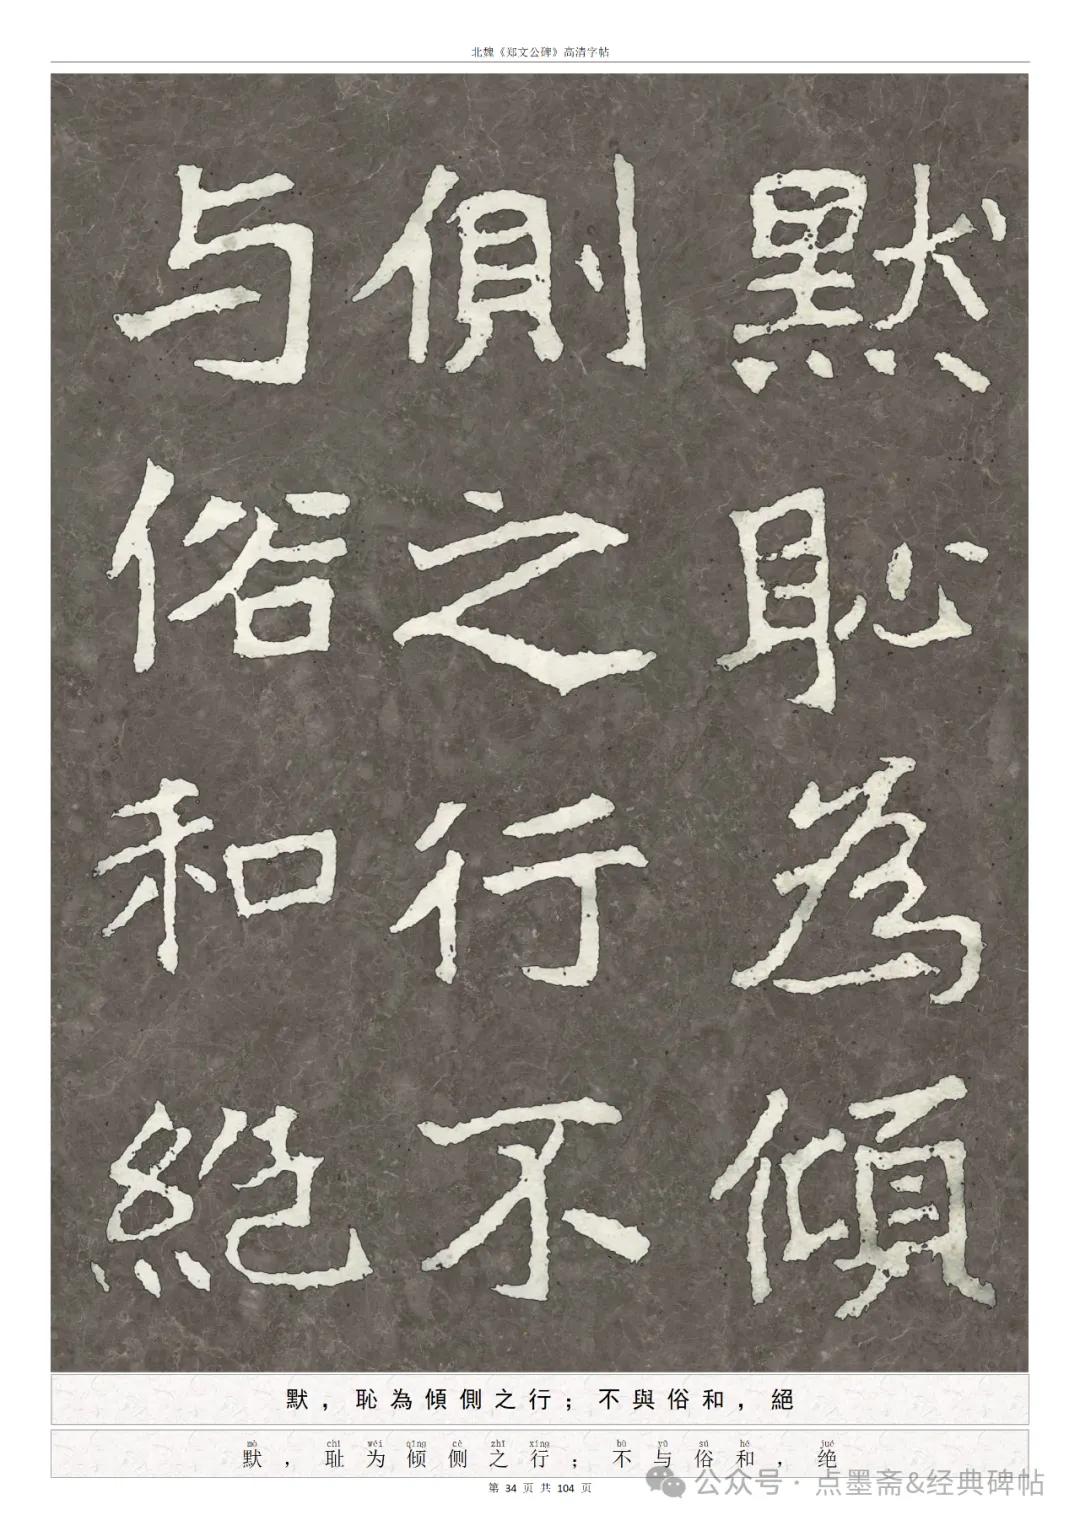 北魏《郑文公碑》高清字帖
默恥為傾
側之行不
与俗和絕
默，恥為傾側之行；不與俗和，絕
mò chǐ wéi qīng cè zhī xíng bù yǔ sú hé jué
默，耻为倾侧之行；不与俗和，绝
第 34 页 共 104 页
公众号 · 点墨斋&经典碑帖